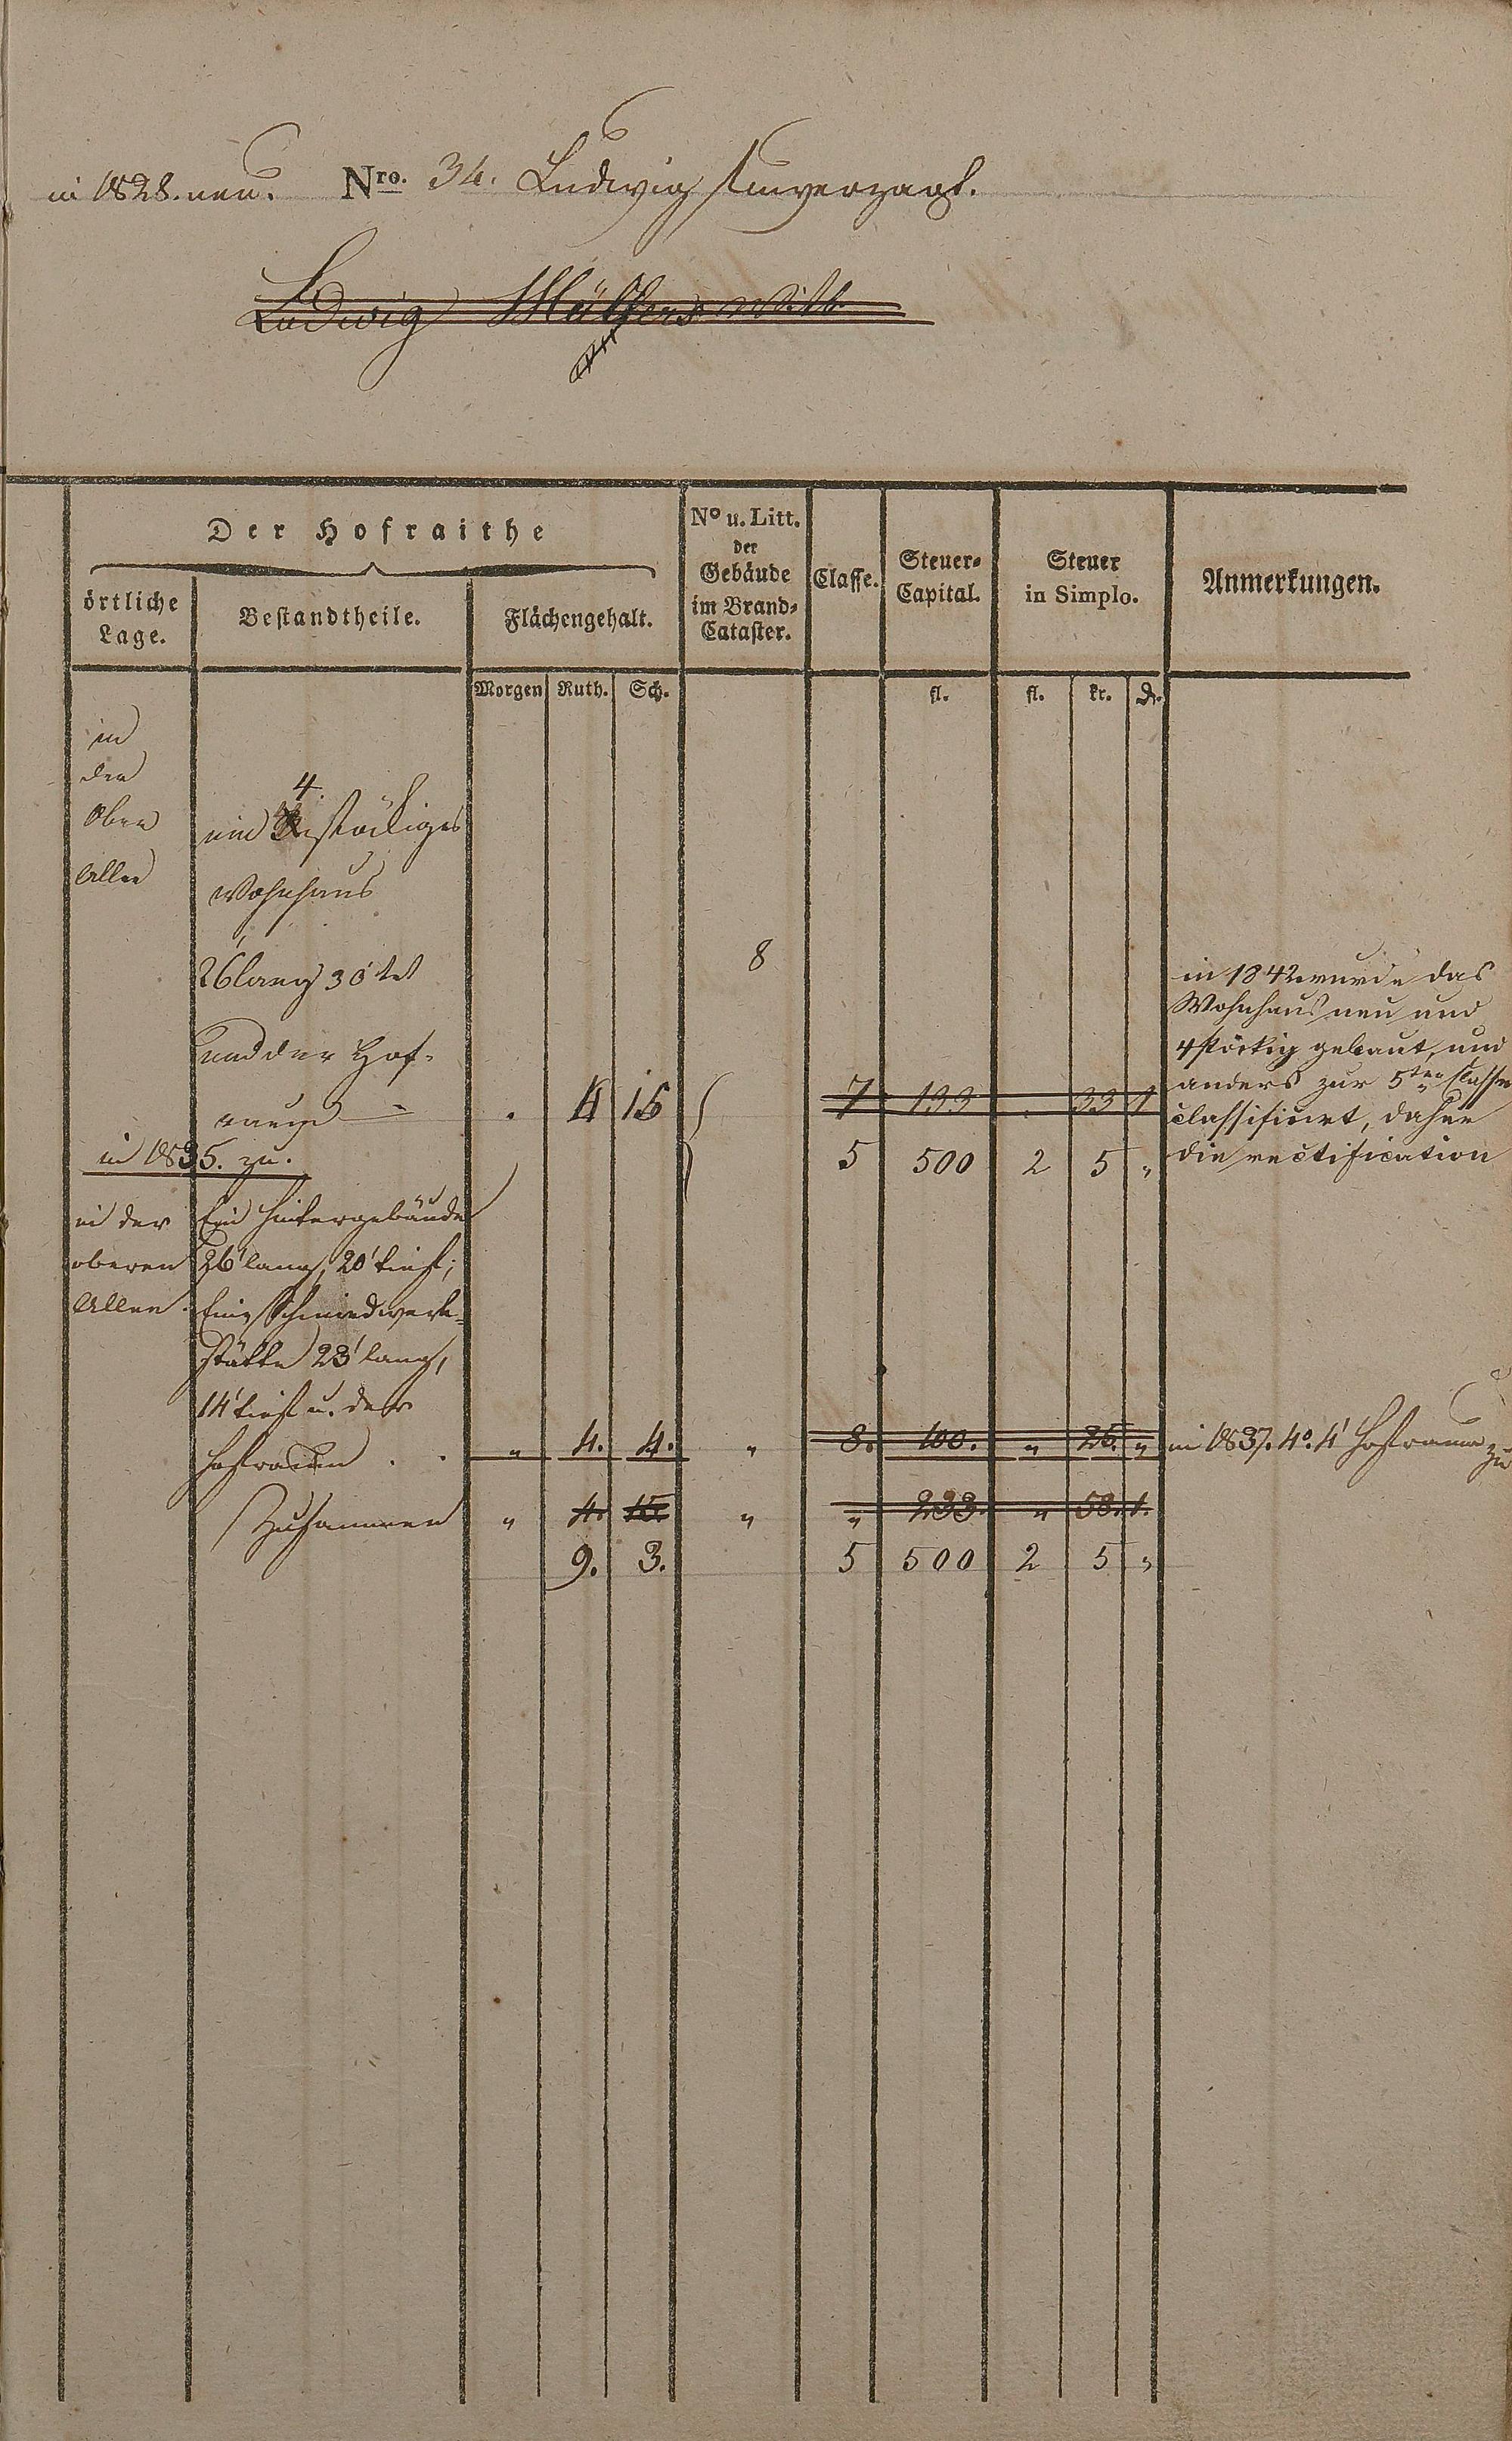 in 1828. neu. Nro. 34. Ludwig Unverzagt.
Ludwig Witb
Der Hofraithe
örtliche Lage.
Bestandtheile.
Flächengehalt.
No u. Litt. der Gebäude im Brand-Cataster.
Classe.
Steuer-Capital.
Steuer in Simplo.
Anmerkungen.
Morgen Ruth. Sch. fl. fl. kr. d.
in
der
Obern
Allee
4.
ein stöckiges
Wohnhaus
26' lang 30' tel
und der Hof-
raum . 4 15 7 133 . 33 1
8
5 500 2 5 "
in 1842 wurde das
Wohnhaus neu und
4 stöckig gebaut, und
anders zur 5ten Classe
classificirt, daher
die rectification
in 1835. zu.
in der
oberen
Allee.
Ein Hintergebäude
26' lang, 20' tief;
Eine Schmiedwerk-
stätte 23' lang,
14' tief u. der
Hofraum . . " 4. 4. " 8. 100. " 25. " in 1837. 4°. 4' Hofraum zu
Zusammen " 4. 15. " " 233. " 58. 1.
9. 3. 5 500 2 5 "